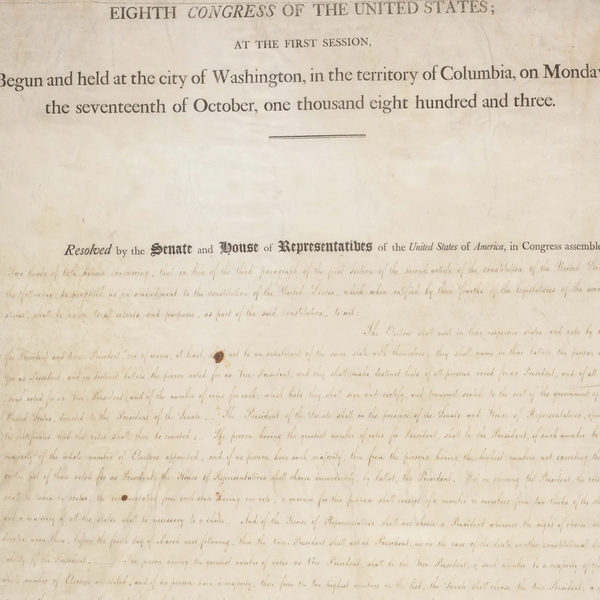 EIGHTH CONGRESS OF THE UNITED STATES;
AT THE FIRST SESSION,
Begun and held at the city of Washington, in the territory of Columbia, on Monday
the seventeenth of October, one thousand eight hundred and three.
Resolved by the Senate and House of Representatives of the United States of America, in Congress assemble
Two thirds of both houses concurring, that in lieu of the third paragraph of the first section of the second article of the constitution of the United
the following be proposed as an amendment to the constitution of the United States, which when ratified by three fourths of the legislatures of the
states, shall be valid to all intents and purposes, as part of the said constitution, to wit:
The Electors shall meet in their respective states, and vote by
for President and Vice President, one of whom, at least, shall not be an inhabitant of the same state with themselves; they shall name in their ballots the person
for as President, and in distinct ballots the person voted for as Vice President, and they shall make distinct lists of all persons voted for as President, and of all
voted for as Vice President, and of the number of votes for each, which lists they shall sign and certify, and transmit sealed to the seat of the government of
United States, directed to the President of the Senate. The President of the Senate shall in the presence of the Senate and House of Representatives,
the certificates and the votes shall then be counted: The person having the greatest number of votes for President, shall be the President, if such number
majority of the whole number of Electors appointed; and if no person have such majority, then from the persons having the highest numbers not exceeding
on the list of those voted for as President, the House of Representatives shall choose immediately, by ballot, the President. But in choosing the President, the
shall be taken by states, the representation from each state having one vote; a quorum for this purpose shall consist of a member or members from two thirds of the
and a majority of all the states shall be necessary to a choice. And if the House of Representatives shall not choose a President whenever the right of choice
devolve upon them, before the fourth day of March next following, then the Vice President shall act as President, as in the case of the death or other constitutional
ability of the President. The person having the greatest number of votes as Vice President, shall be the Vice President, if such number be a majority of the
whole number of Electors appointed, and if no person have a majority, then from the two highest numbers on the list, the Senate shall choose the Vice President;